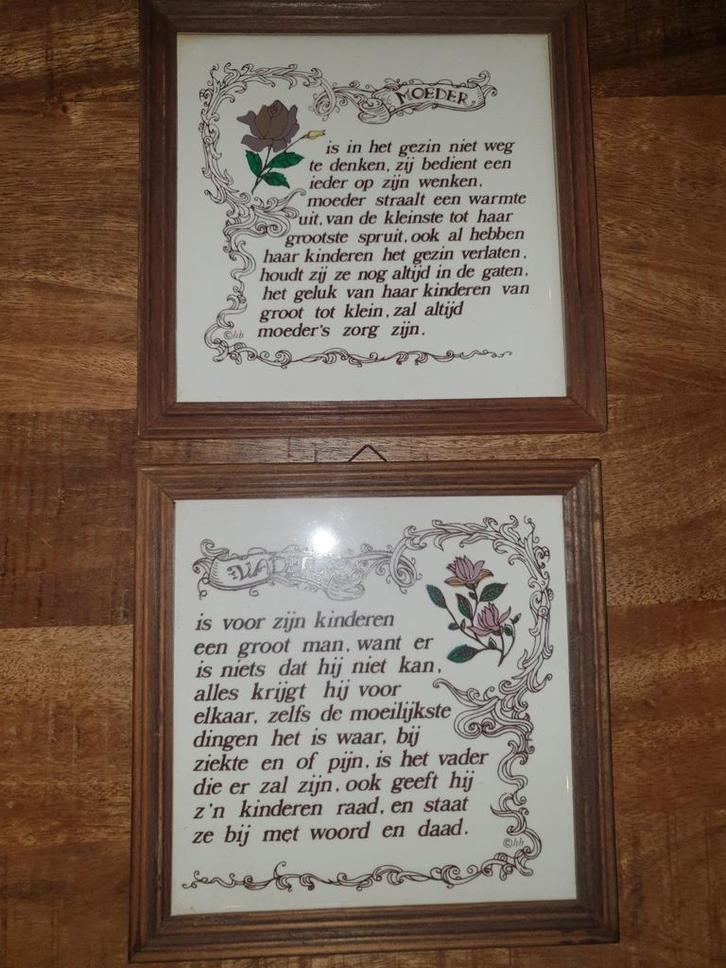 MOEDER
is in het gezin niet weg
te denken, zij bedient een
ieder op zijn wenken.
moeder straalt een warmte
uit, van de kleinste tot haar
grootste spruit, ook al hebben
haar kinderen het gezin verlaten.
houdt zij ze nog altijd in de gaten.
het geluk van haar kinderen van
groot tot klein, zal altijd
moeder's zorg zijn.
©hb
VADER
is voor zijn kinderen
een groot man, want er
is niets dat hij niet kan,
alles krijgt hij voor
elkaar, zelfs de moeilijkste
dingen het is waar, bij
ziekte en of pijn, is het vader
die er zal zijn, ook geeft hij
z'n kinderen raad, en staat
ze bij met woord en daad.
©hb